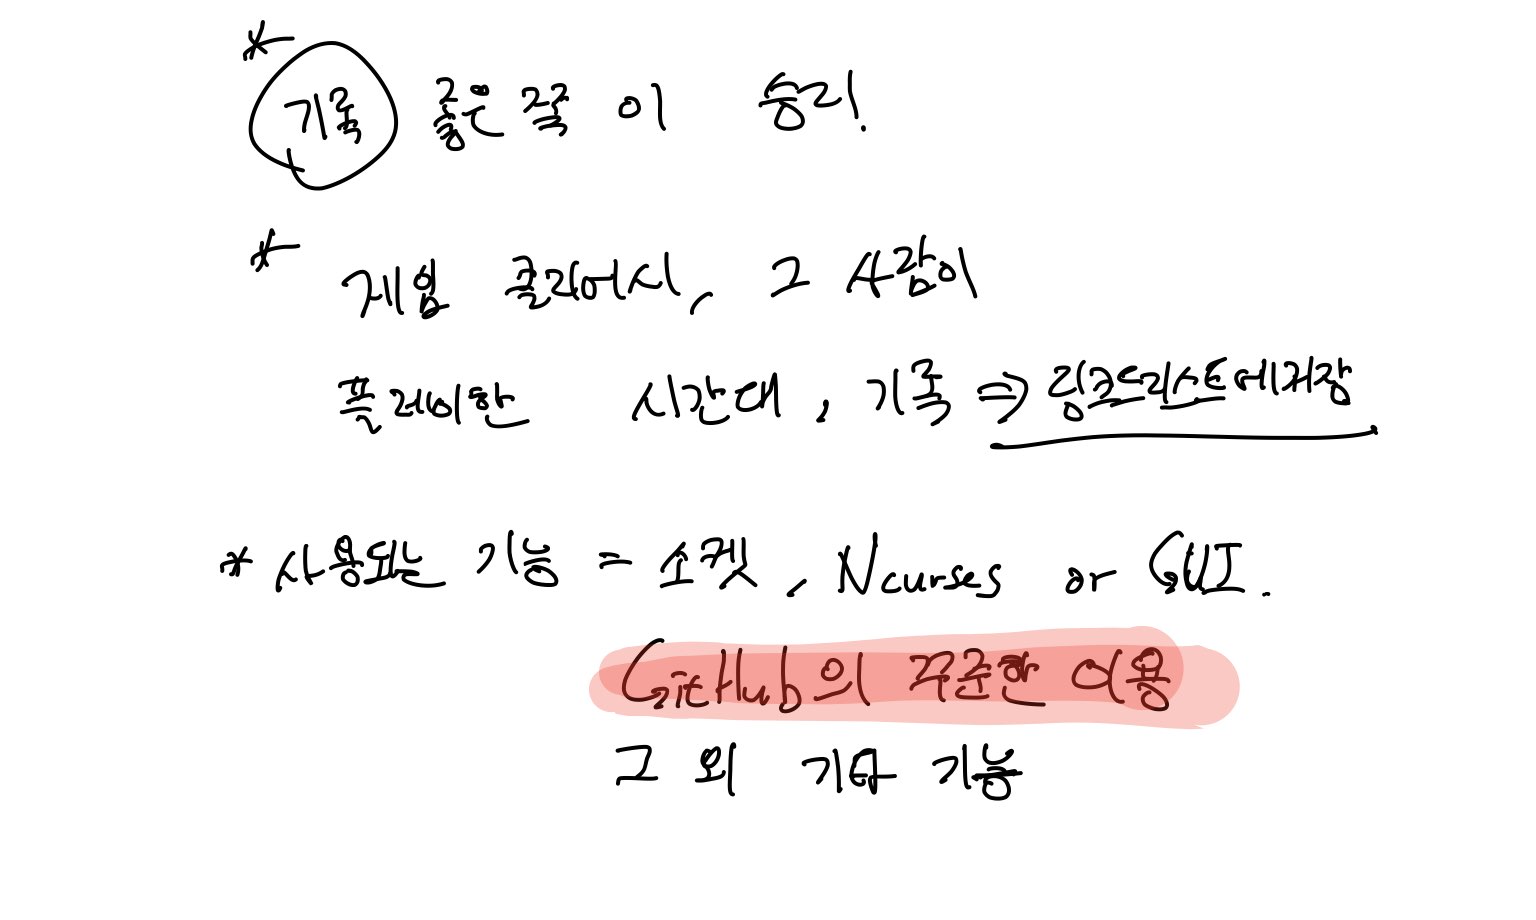 * 기록 좋은 쪽이 승리!
* 게임 클리어시, 그 사람이
플레이한 시간대, 기록 ⇒ 링크드리스트에 저장
* 사용되는 기능 = 소켓, Ncurses or GUI.
GitHub의 꾸준한 이용
그 외 기타 기능